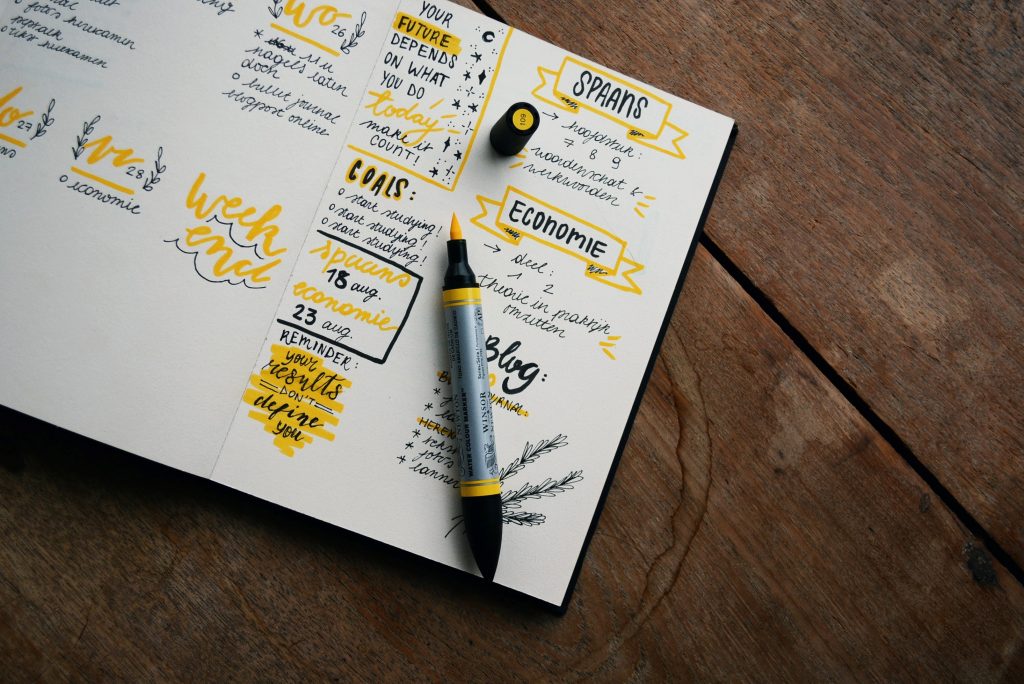 foto's herexamen
peptalk
herexamen
wo
26
nagels laten
doen
o bullet journal
blogpost online
27
vr
28
o economie
week
end
YOUR
FUTURE
DEPENDS
ON WHAT
YOU DO
today
make it
COUNT!
GOALS:
o start studying!
o start studying!
o start studying!
spaans
18 aug.
economie
23 aug.
REMINDER:
your
results
DON'T
define
you
109
SPAANS
→ hoofdstuk:
7 8 9
woordenschat &
werkwoorden
ECONOMIE
→ deel:
1 2
theorie in praktijk
omzetten
Blog:
JOURNAL:
HEREX
foto's
WATER COLOUR MARKER
WINSOR